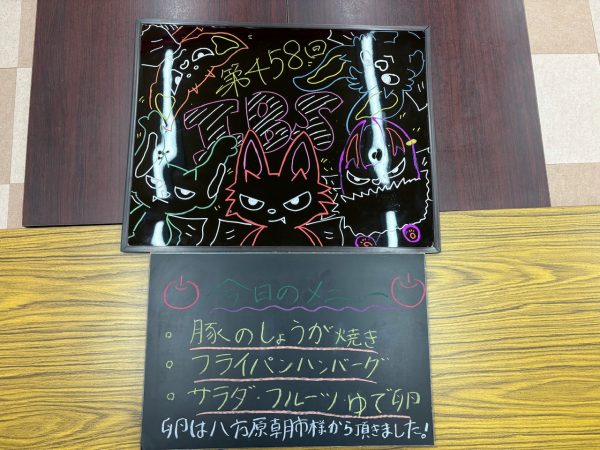 第458回
TBS
今日のメニュー
・豚のしょうが焼き
・フライパンハンバーグ
・サラダ・フルーツ・ゆで卵
卵は八方原朝市様から頂きました!